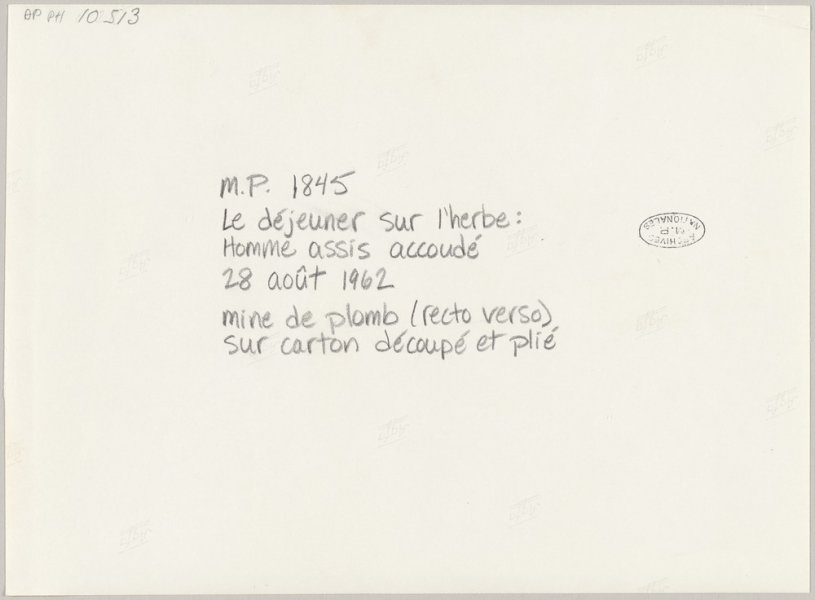 AP PH 10513
M.P. 1845
Le déjeuner sur l'herbe:
Homme assis accoudé
28 août 1962
mine de plomb (recto verso)
sur carton découpé et plié
ARCHIVES
M.P.
NATIONALES